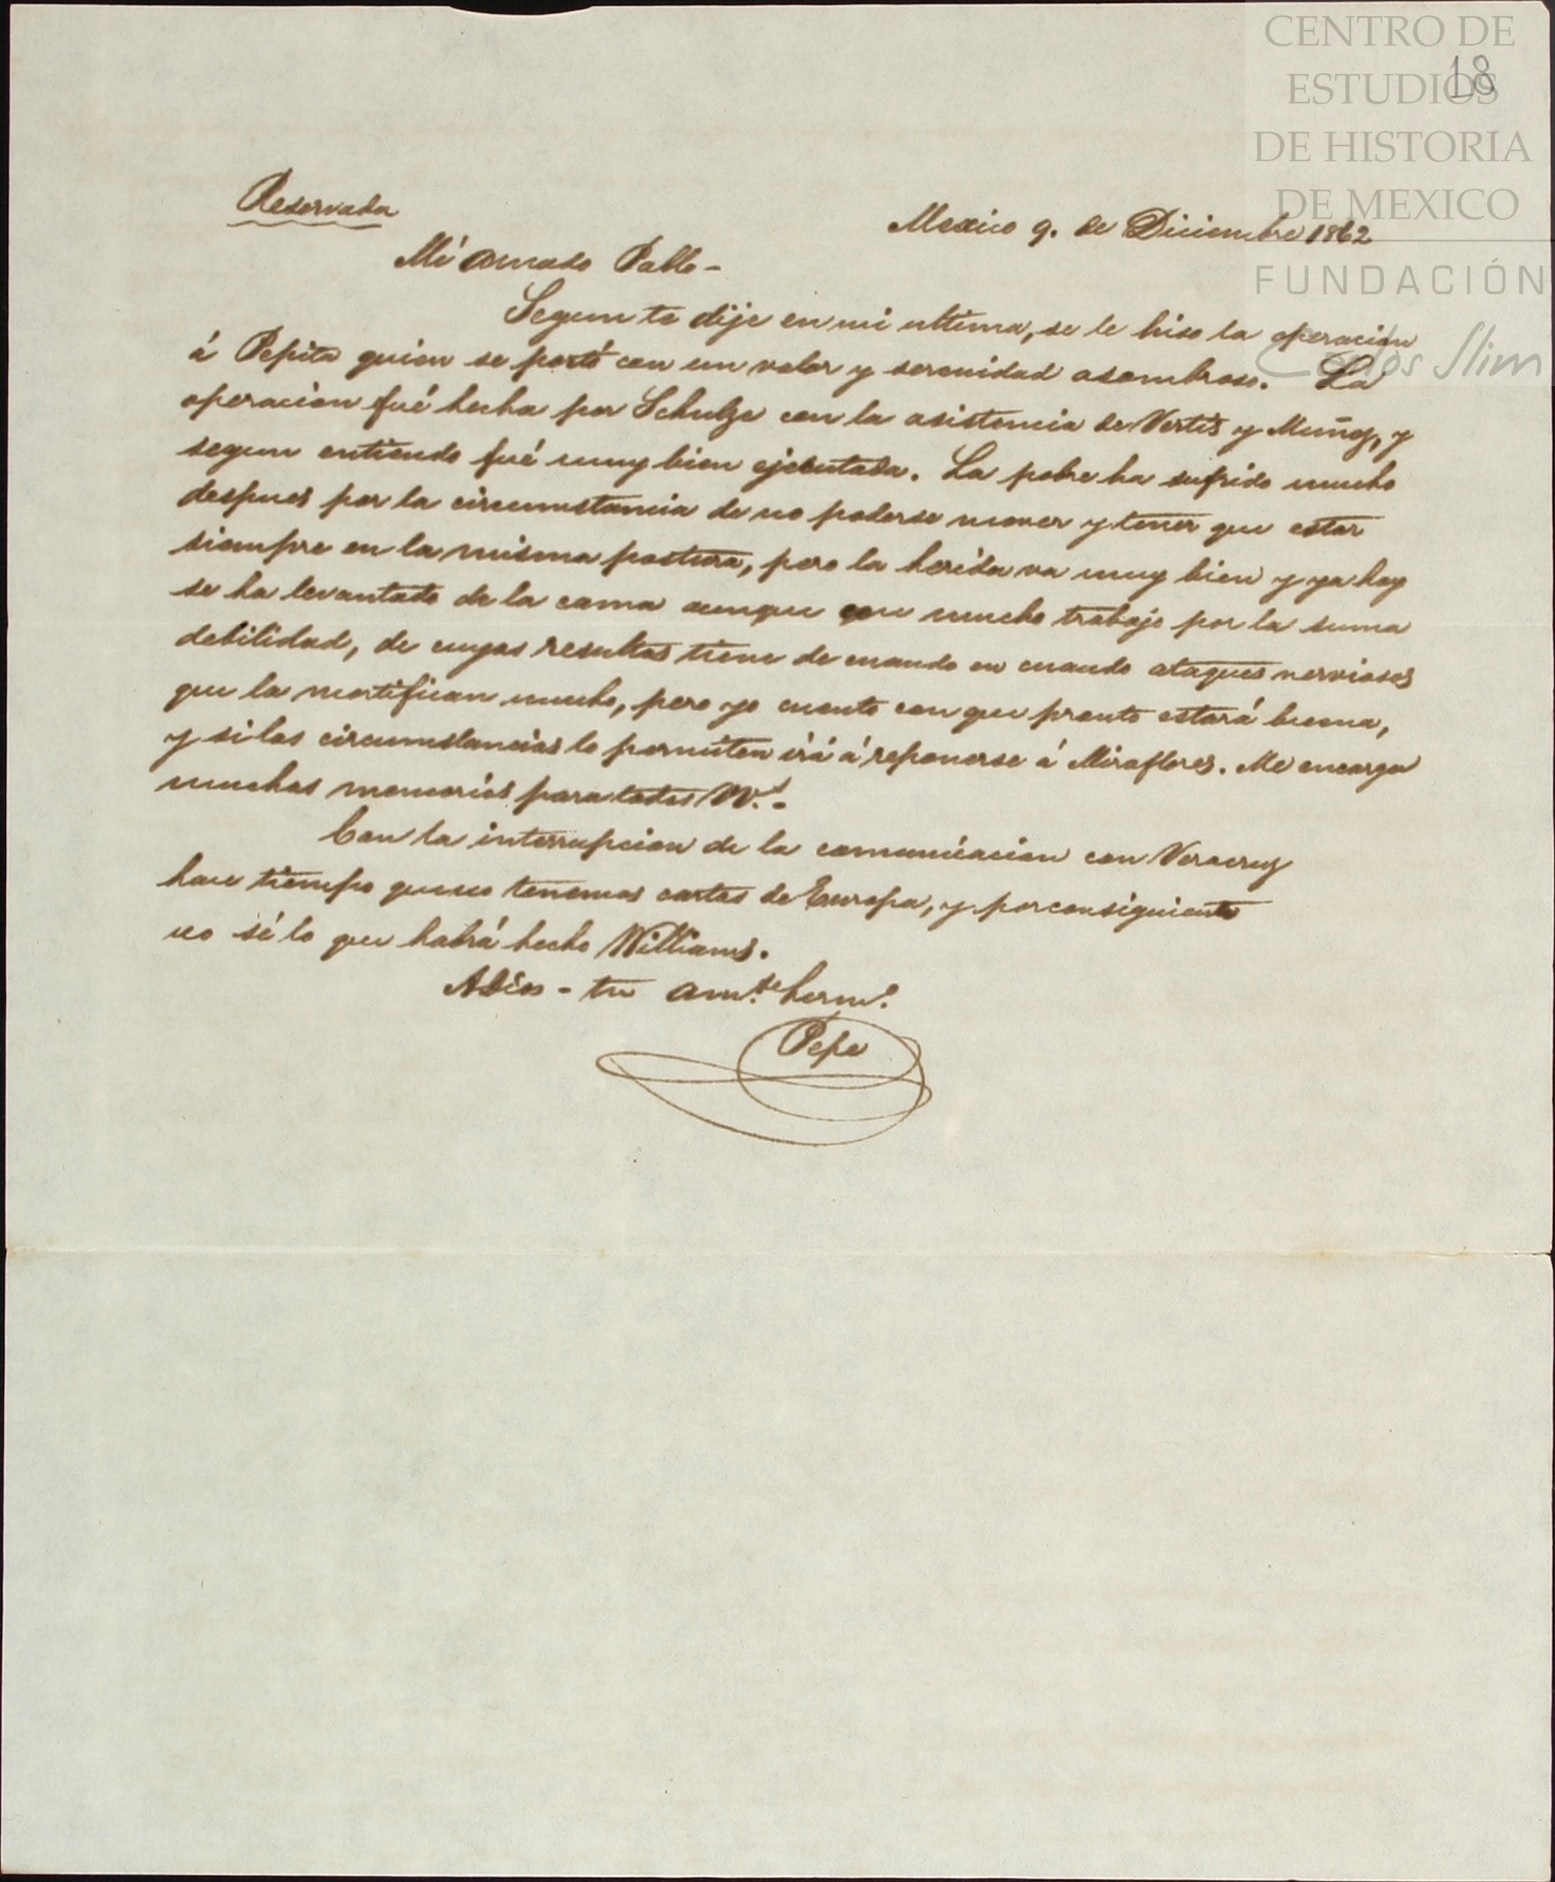 CENTRO DE
ESTUDIOS
DE HISTORIA
DE MEXICO
FUNDACIÓN
Carlos Slim
18
Reservada
Mexico 9. de Diciembre 1862
Mi amado Pablo -
Segun te dije en mi ultima, se le hiso la operacion
á Pepita quien se portó con un valor y serenidad asombroso. La
operacion fué hecha por Schulze con la asistencia de Vertis y Muñoz, y
segun entiendo fué muy bien ejecutada. La pobre ha sufrido mucho
despues por la circumstancia de no poderse mover y tener que estar
siempre en la misma postura, pero la herida va muy bien y ya hoy
se ha levantado de la cama aunque con mucho trabajo por la suma
debilidad, de cuyas resultas tiene de cuando en cuando ataques nerviosos
que la mortifican mucho, pero yo cuento con que pronto estará buena,
y si las circumstancias lo permiten irá á reponerse á Miraflores. Me encarga
muchas memorias para todos VV.s -
Con la interrupcion de la comunicacion con Veracruz
hace tiempo que no tenemos cartas de Europa, y por consiguiente
no sé lo que habrá hecho Williams.
Adios - tu am.te herm.o
Pepe